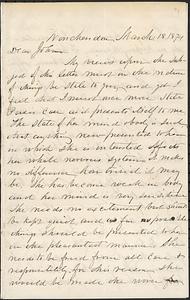 Winchendon, March 18, 1874
Dear John
My views upon the sub-
ject of the letter must in the nature
of things be stale to you, and yet I
feel that I must once more state
case as it presents itself to me
The state of the mind & body is such
that anything new presented to her
in which she is interested affects
her whole nervous system. It makes no
difference how trivial it
may be. She has become weak in body
and her mind is very sensitive
She needs no excitement but should
be kept quiet and as far as possible
things should be presented to her
in the pleasantest manner. She
needs to be freed from all care &
responsibility for this reason she
would be made the more